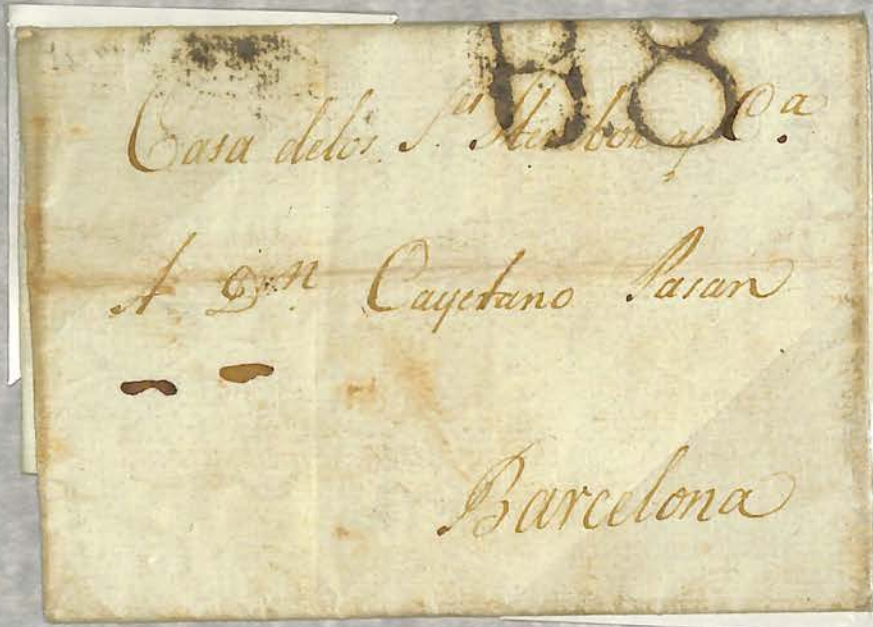 B8
Casa delos S.res y C.a
A D.n Cayetano Pasan
Barcelona